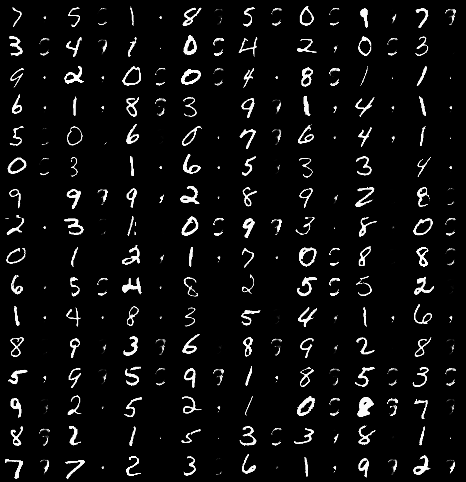 7 5 1 8 5 0 9 7
3 4 1 0 4 2 0 3
9 2 0 0 4 8 1 1
6 1 8 3 9 1 4 1
5 0 6 0 7 6 4 1
0 3 1 6 5 3 3 4
9 9 9 2 8 9 2 8
2 3 1 0 9 3 8 0
0 1 2 1 7 0 8 8
6 5 4 8 2 5 5 2
1 4 8 3 5 4 1 6
8 9 3 6 8 9 2 8
5 9 5 9 1 8 5 3
9 2 5 2 1 0 8 7
8 2 1 5 3 3 8 1
7 7 2 3 6 1 9 2